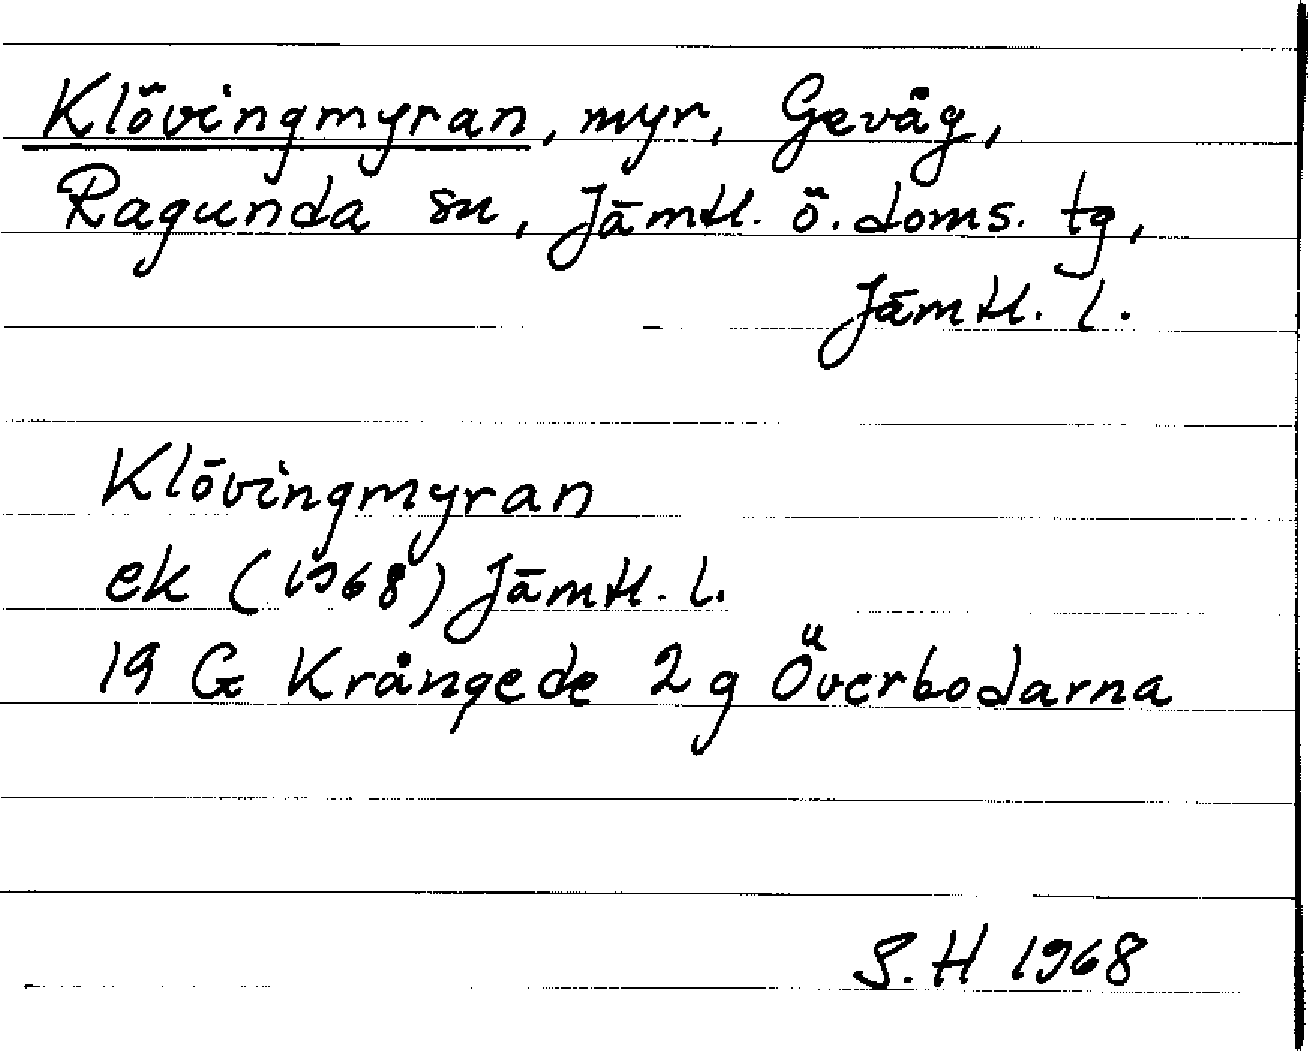 Klövingmyran, myr, Gevåg,
Ragunda sn, Jämtl. ö. doms. tg,
Jämtl. l.
Klövingmyran
ek (1968) Jämtl. l.
19 G Krångede 2 g Överbodarna
S. H 1968